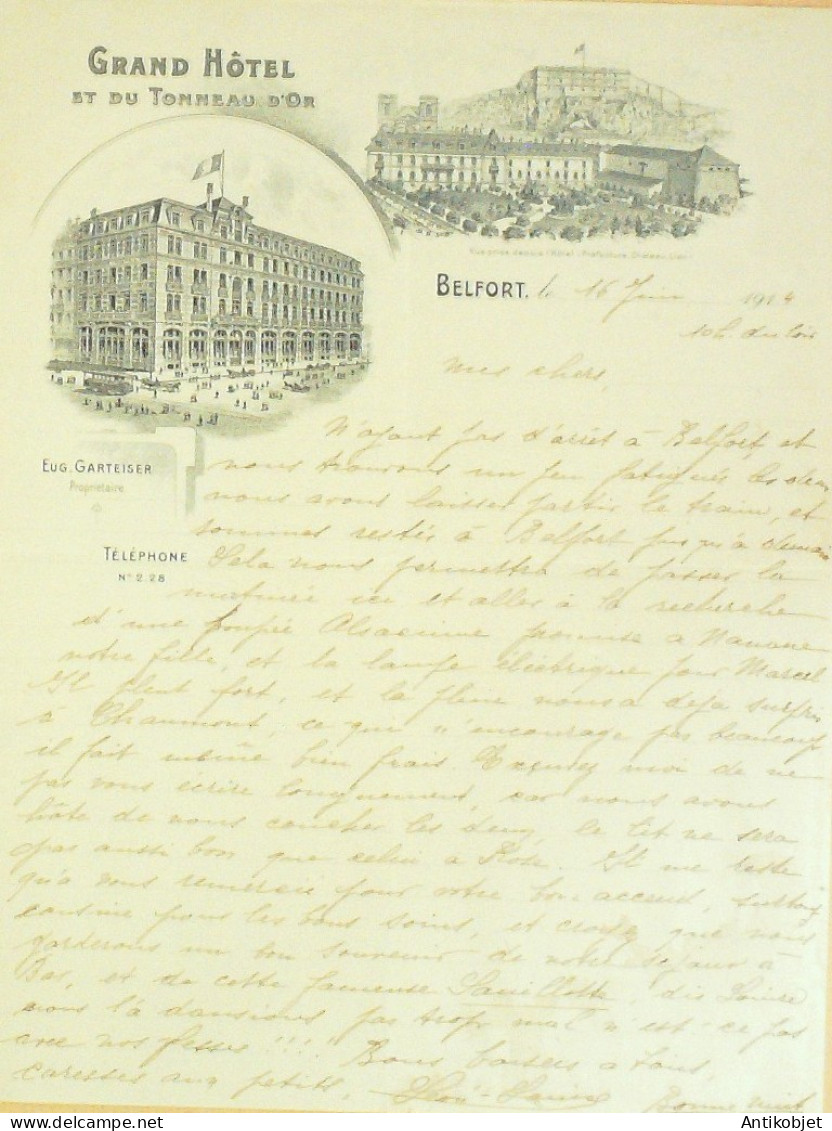 GRAND HÔTEL
ET DU TONNEAU D'OR
BELFORT, le 16 Juin 1914
10h. du soir
Mes chers,
N'ayant pas d'arrêt à Belfort et
EUG. GARTEISER
Propriétaire
nous trouvons un peu fatigués les deux
nous avons laisser partir le train, et
sommes restés à Belfort jusqu'à demain
TÉLÉPHONE
N° 2.28
Cela nous permettra de passer la
matinée ici et aller à la recherche
d'une poupée Alsacienne promise a
notre fille, et la lampe électrique pour Marcel
Il pleut fort, et la pluie nous a deja surpris
à Chaumont, ce qui n'encourage pas beaucoup
il fait même bien frais. Excusez moi de ne
pas vous écrire longuement, car nous avons
hâte de nous coucher les deux, le lit ne sera
pas aussi bon que celui à Rose. Il me reste
qu'a vous remercie pour votre bon accueil, surtout
cousine pour les bons soins, et croyez que nous
garderons un bon souvenir de notre séjour à
Bar, et de cette fameuse, dis Louise
nous là dansions pas trop mal n'est-ce pas
avec nos fesses!!!! Bons baisers a tous,
caresses aux petits,
Bonne nuit
Antikobjet